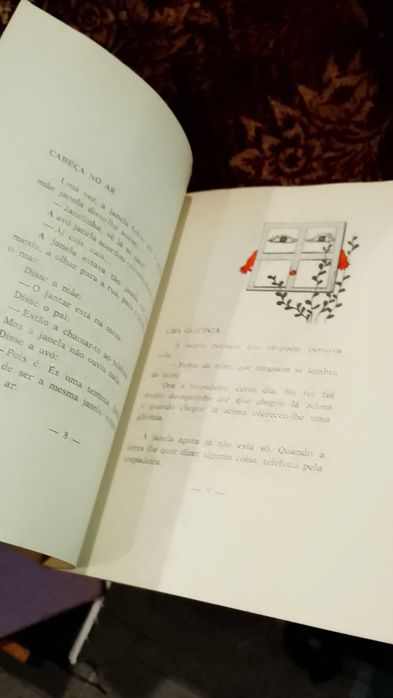 CABEÇA NO AR
Uma vez, a janela
mãe janela disse-lhe assim:
— Janelinha, vê já se
A avó janela acordou
— Ai cais, cais...
A janela estava tão janela
mexia, a olhar para a rua, para
o mar.
Disse a mãe:
— O jantar está na mesa.
Disse o pai:
— Estão a chamar-te ao telefone
Mas a janela não ouviu nada.
Disse a avó:
— Pois é. És uma teimosa
de ser a mesma janela,
ar.
— 8 —
UMA GLICÍNIA
A janela pensava que ninguém pensava
nela.
— Pobre de mim, que ninguém se lembra
de mim!
Ora a trepadeira, certo dia, foi foi foi
muito devagarinho até que chegou lá acima
e quando chegou lá acima ofereceu-lhe uma
glicínia.
A janela agora já não está só. Quando a
terra lhe quer dizer alguma coisa, telefona pela
trepadeira.
— 9 —